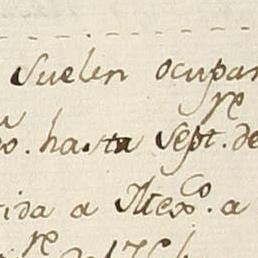 Suelen ocupar
o. hasta Sept.re de
ida a Mex.co a